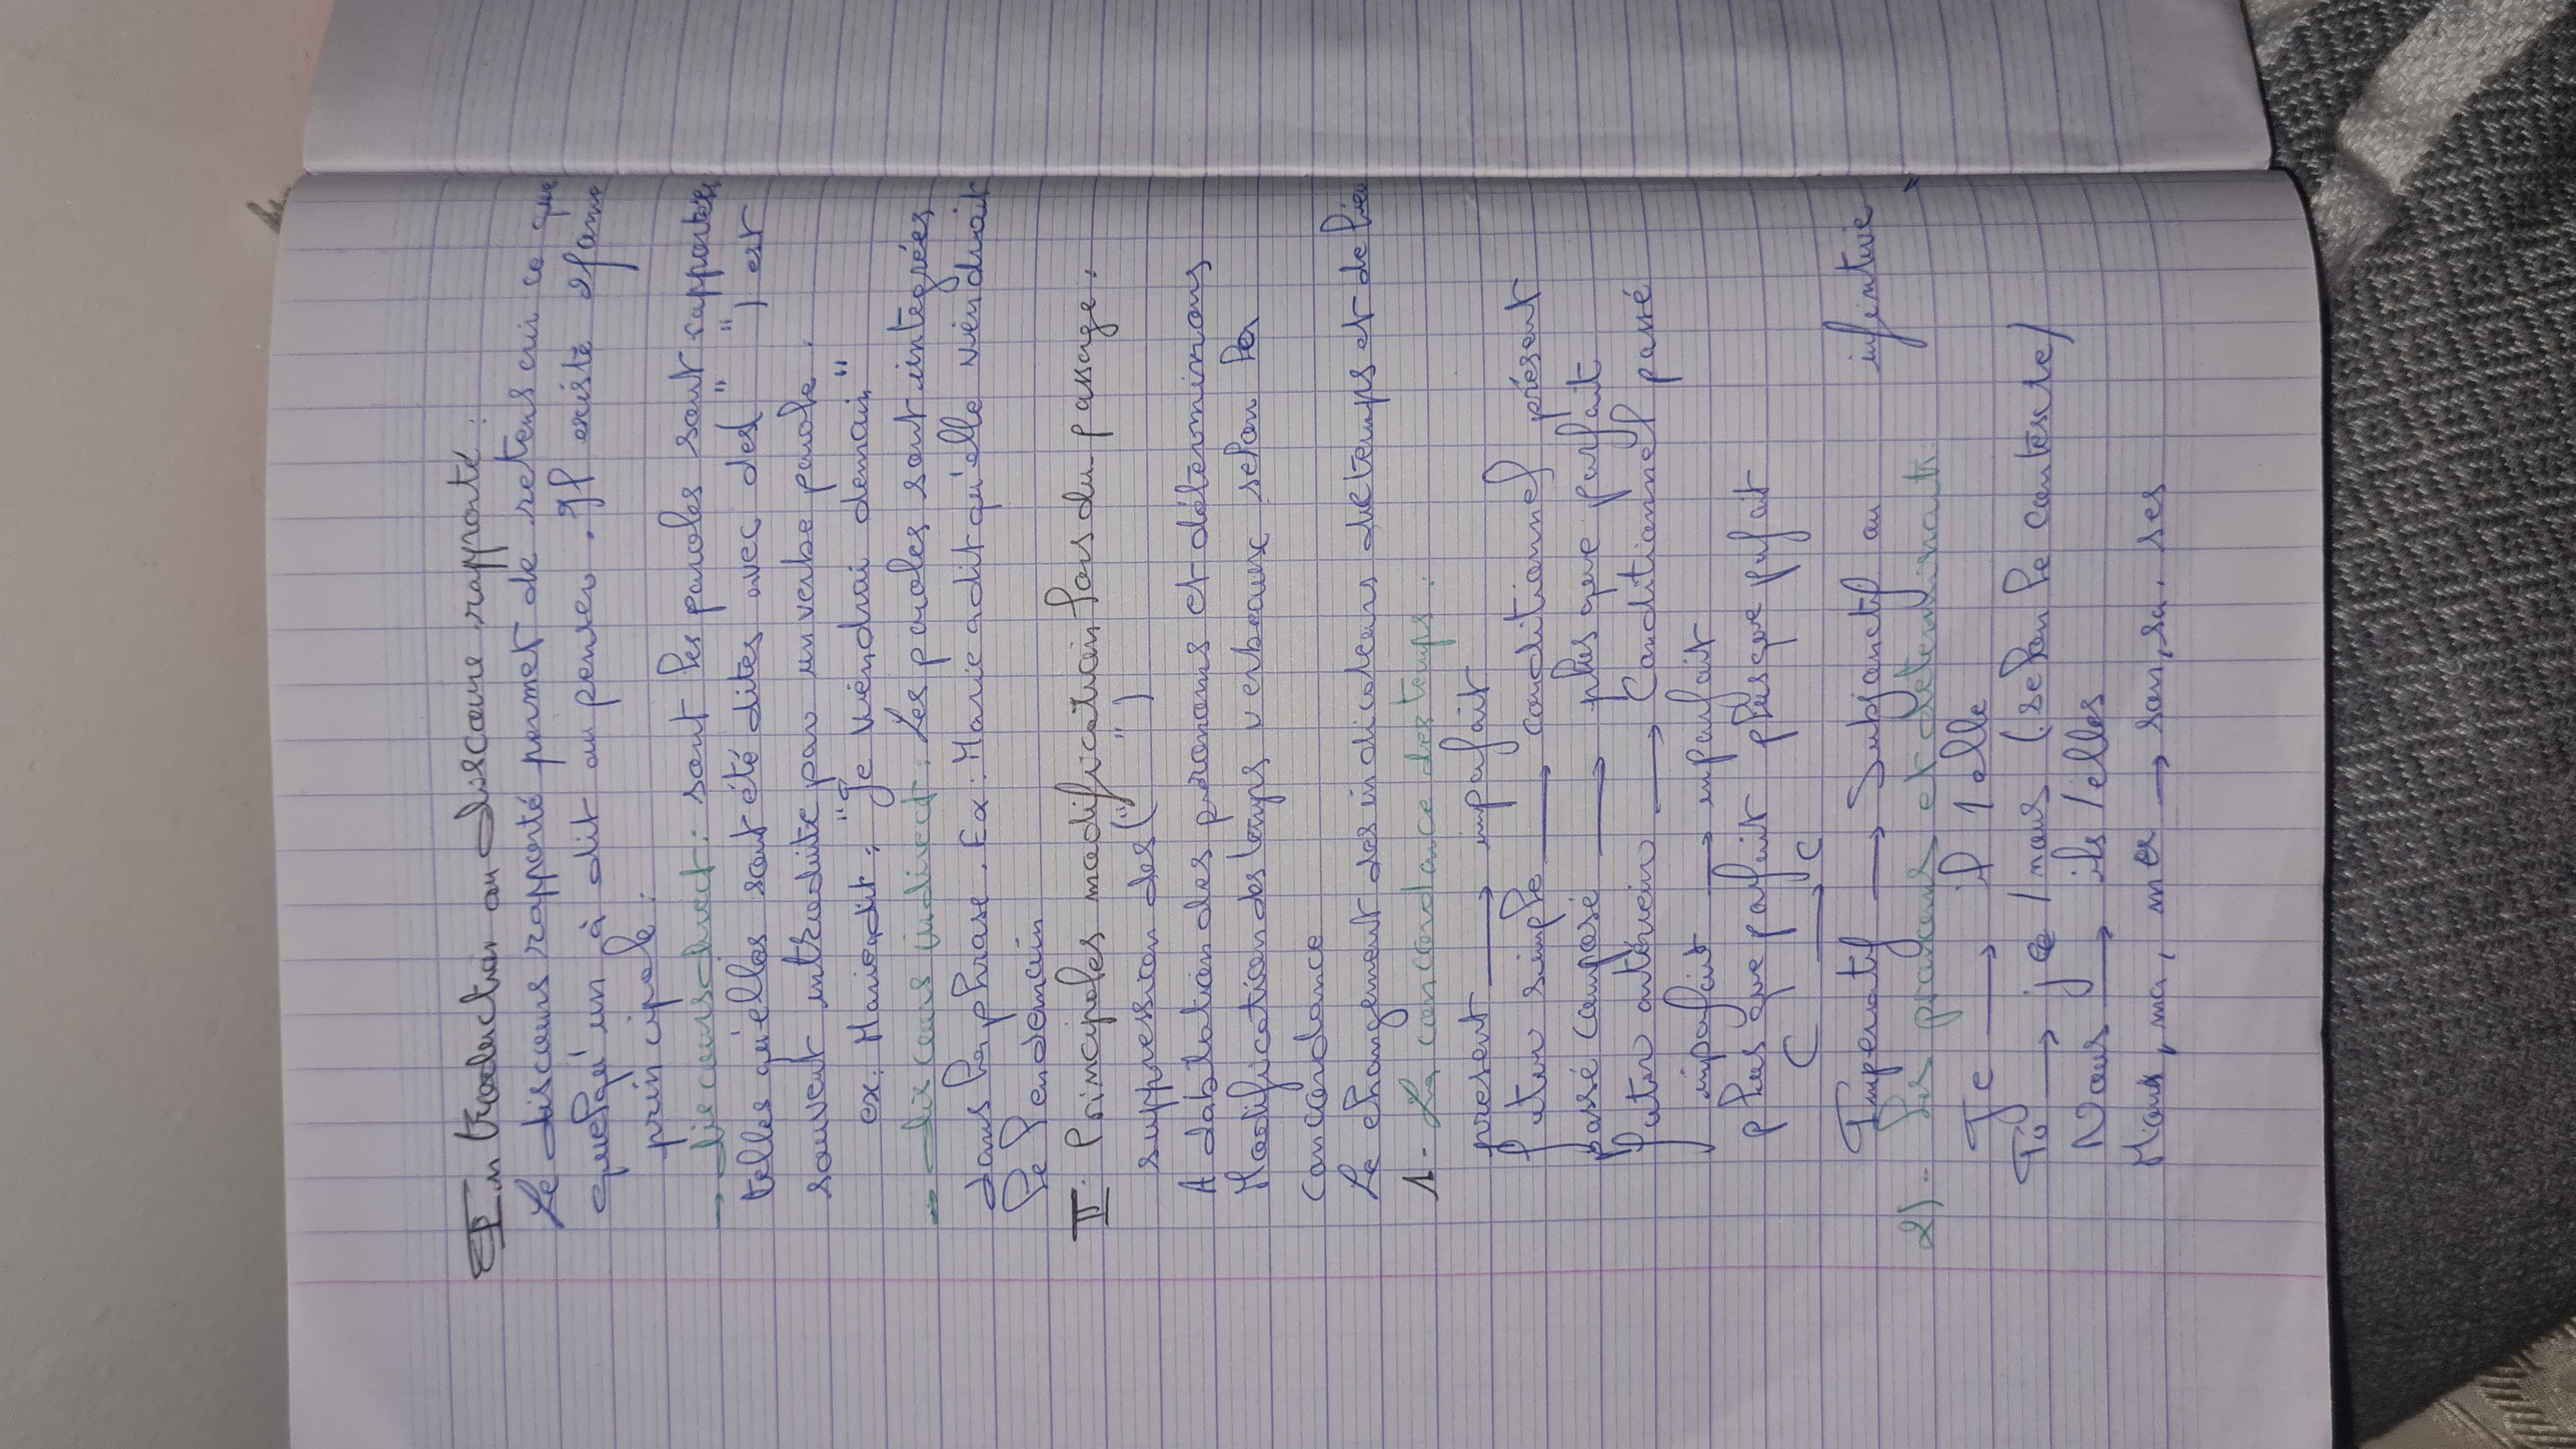 Introduction au discours rapporté :
Le discours rapporté permet de ce que
quelqu'un à dit ou penser. Il existe 2 forme
principale :
→ discours direct : sont les paroles sont rapportées
telles qu'elles sont été dites avec des (" ") est
souvent introduite par un verbe parole.
ex : Marie a dit : "Je viendrai demain"
→ discours indirect : Les paroles sont intégrées
dans la phrase. Ex : Marie a dit qu'elle viendrait
le lendemain
II. Principales modification lors du passage :
suppression des (" ")
Adabtation des pronoms et déterminans
Modification des temps verbeaux selon la
concordance
Le changement des indicateurs de temps et de lieu
1- La concordance des temps :
present → impafait
futur simple → conditionnel présent
passé composé → plus que parfait
futur antérieur → Conditionnel passé
impafait → imparfait
plus que parfait plus que pafait
C → C
Imperatif → Subjonctif ou infintive
2)- Les pronoms et determinants
Je → il / elle
Tu → je / nous (selon le contexte)
Nous → ils / elles
Mon, ma, mes → son, sa, ses